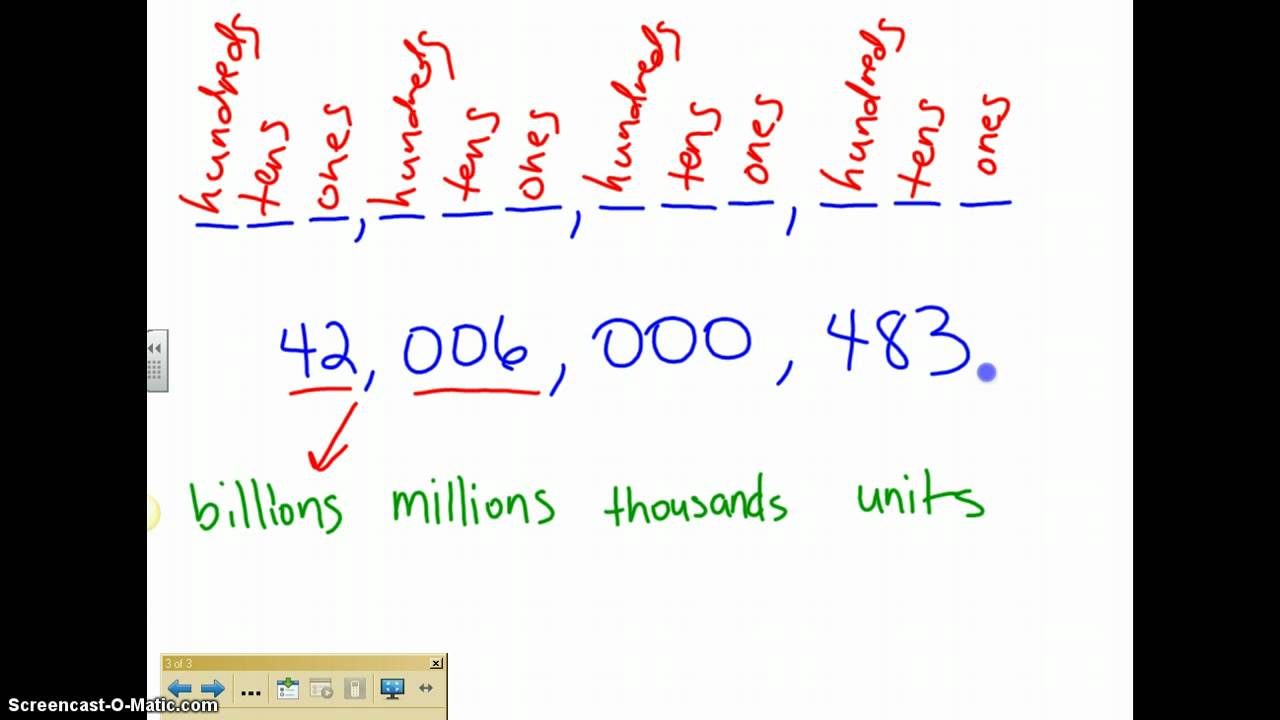 hundreds tens ones hundreds tens ones hundreds tens ones hundreds tens ones
_ _ _ , _ _ _ , _ _ _ , _ _ _
42, 006, 000, 483.
billions millions thousands units
3 of 3
Screencast-O-Matic.com